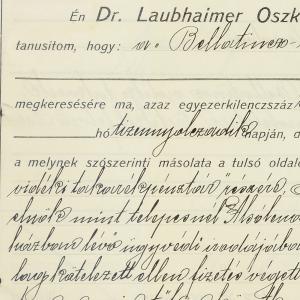 Én Dr. Laubhaimer Oszk
tanusítom, hogy: a "Bellatincz-
megkeresésére ma, azaz egyezerkilenczszáz
hó tizennyolczadik napján, d
a melynek szószerinti másolata a tulsó oldal
vidéki takarékpénztár" részv.
elnök mint telepesnél Alsólen
házban lévő ügyvédi irodájába
kötelezett ellen fizetés végett